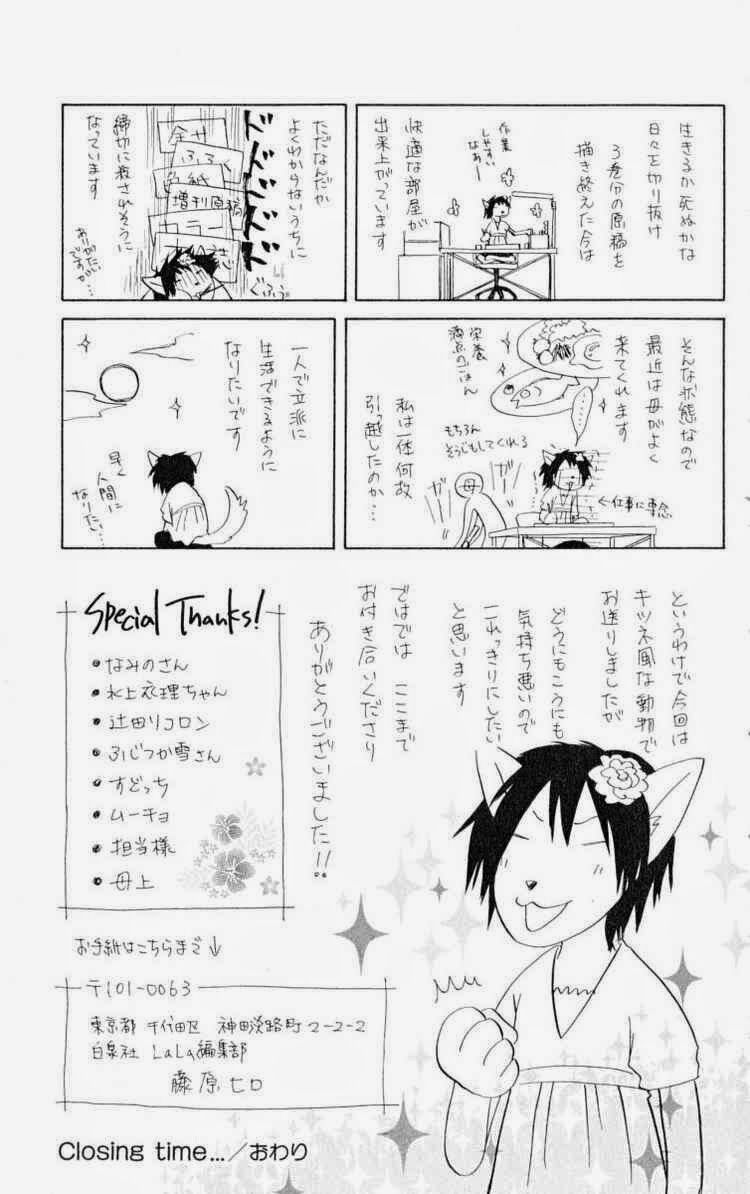 生きるか死ぬかな
日々を切り抜け
3巻分の原稿を
描き終えた今は
作業
しやすい
なあー
快適な部屋が
出来上がっています
ただなんだか
よくわからないうちに
ドドドドド
全サ
ふろく
色紙
増刊原稿
カラー
ぐふっ
締切に殺されそうに
なっています
ありがたい
ですが…
そんな状態なので
最近は母がよく
来てくれます
栄養
満点のごはん
……
もちろん
そうじもしてくれる
←仕事に専念
母
ガーガー
私は一体何故
引っ越したのか…
一人で立派に
生活できるように
なりたいです
早く
人間に
なりたい…
というわけで今回は
キツネ風な動物で
お送りしましたが
どうにもこうにも
気持ち悪いので
これっきりにしたい
と思います
ではでは ここまで
お付き合いくださり
ありがとうございました!!
Special Thanks!
• なみのさん
• 水上衣理ちゃん
• 辻田リコロン
• ふじつか雪さん
• すどっち
• ムーチョ
• 担当様
• 母上
お手紙はこちらまで↓
〒101-0063
東京都 千代田区 神田淡路町2-2-2
白泉社 LaLa編集部
藤原ヒロ
Closing time…／おわり